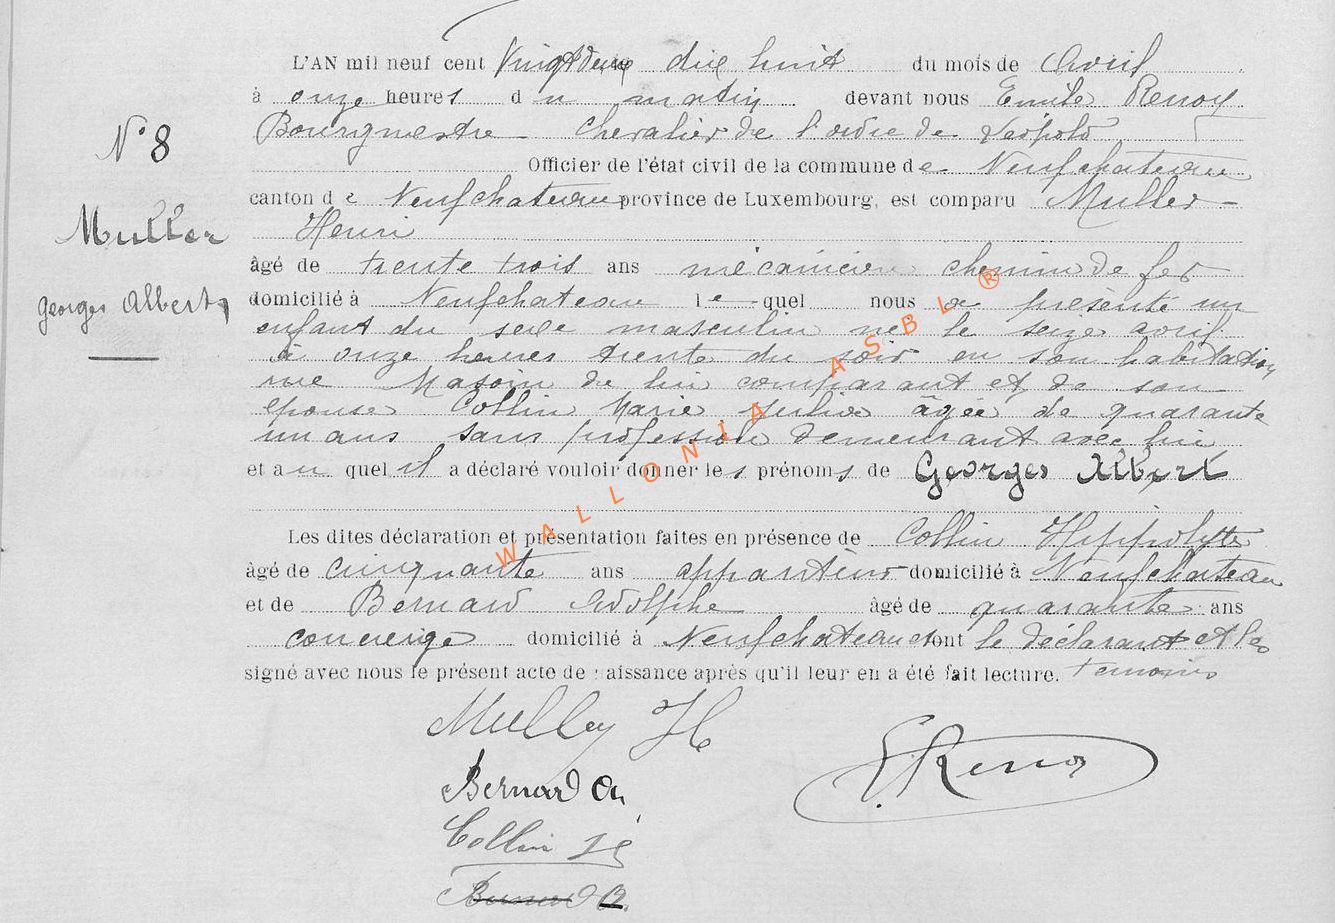 L'AN mil neuf cent Vingt deux dix huit du mois de Avril
à onze heures du matin devant nous Emile Renoy
N° 8
Bourgmestre Chevalier de l'ordre de Léopold
Officier de l'état civil de la commune de Neufchateau
canton de Neufchateau province de Luxembourg, est comparu Muller
Muller
Henri
âgé de trente trois ans mécanicien chemin de fer
Georges Albert
domicilié à Neufchateau lequel nous a présenté un
enfant du sexe masculin né le seize avril
à onze heures trente du soir en son habitation
rue de lui comparant et de son
épouse Collin Marie Julie âgée de quarante
un ans sans profession demeurant avec lui
et auquel il a déclaré vouloir donner les prénoms de Georges Albert
Les dites déclaration et présentation faites en présence de Collin Hippolyte
âgé de cinquante ans appariteur domicilié à Neufchateau
et de Bernard Adolphe âgé de quarante ans
concierge domicilié à Neufchateau et ont le déclarant et les
signé avec nous le présent acte de naissance après qu'il leur en a été fait lecture. témoins
Muller H
E. Renoy
Bernard
Collin
Bernard
WALLONIA ASBL ®